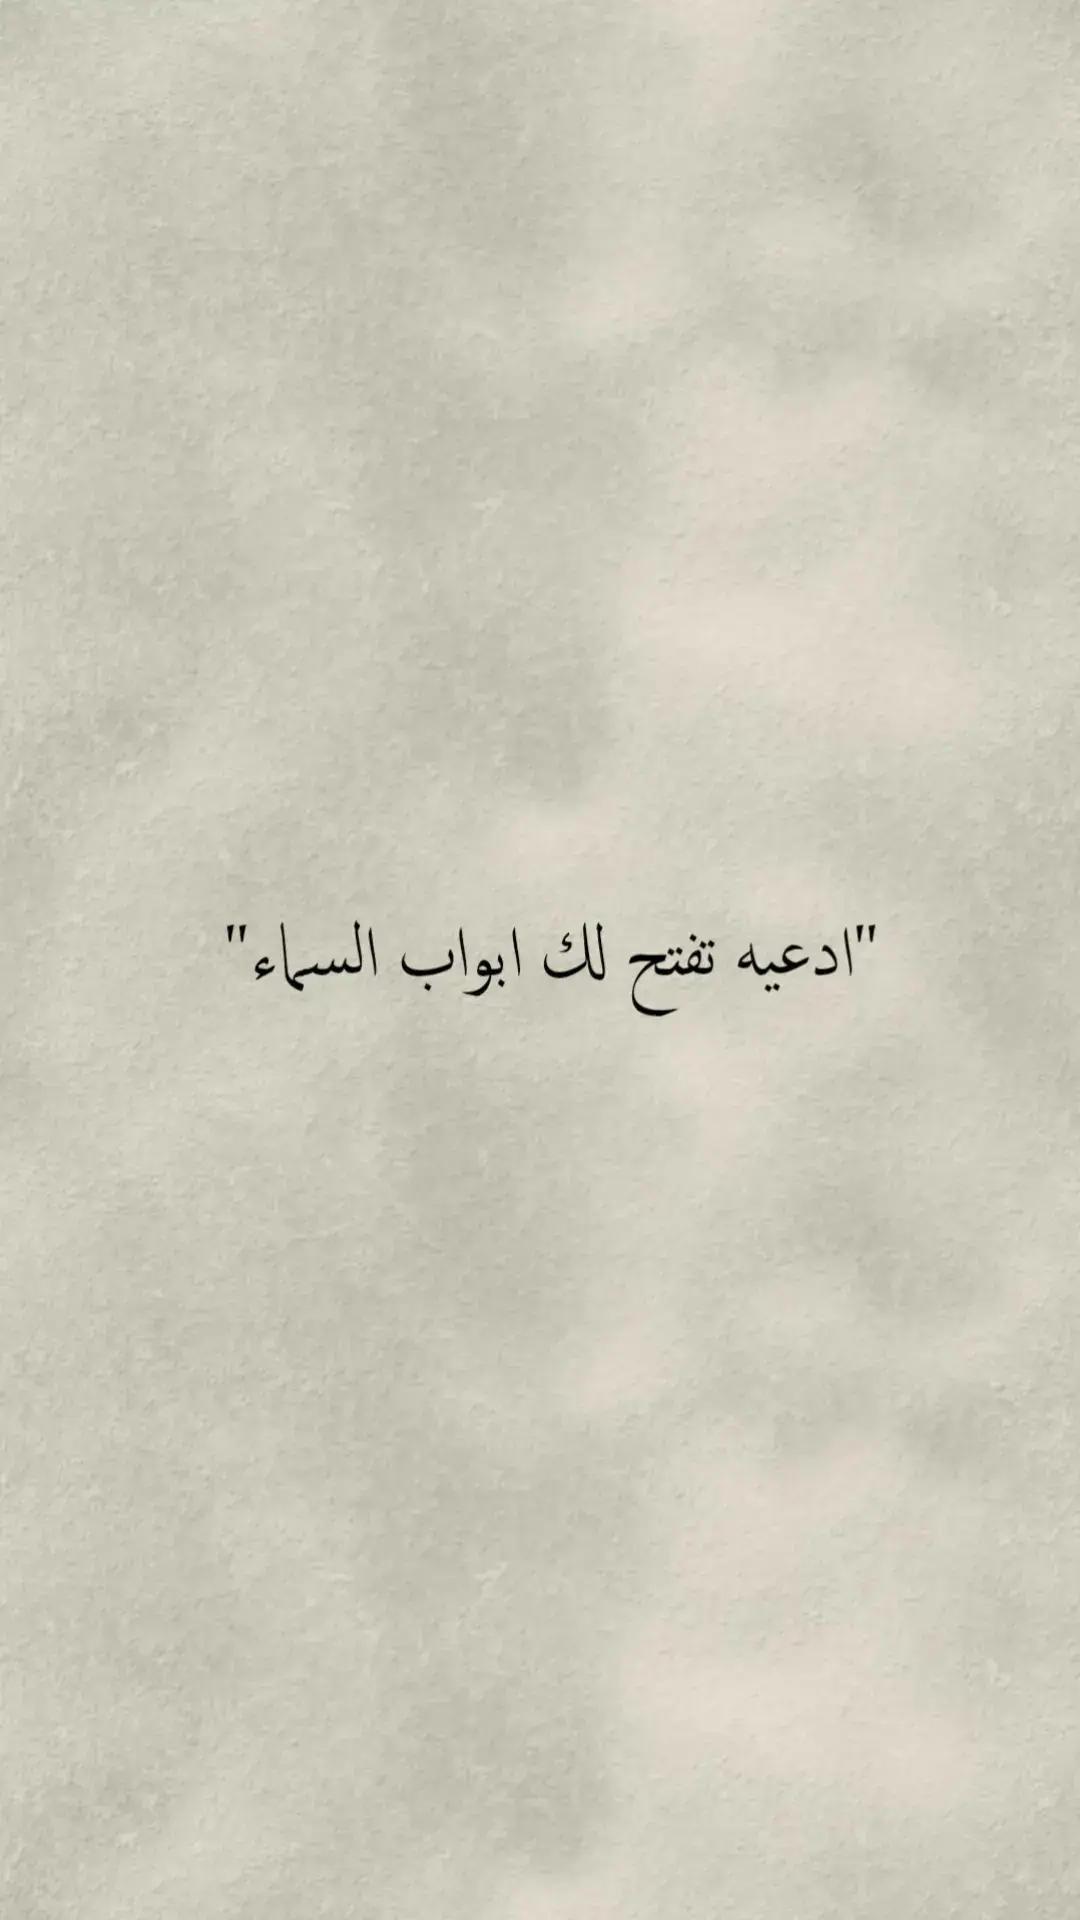 "ادعيه تفتح لك ابواب السماء"